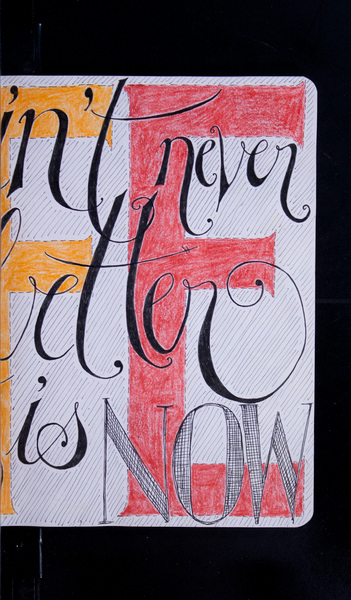 in't never
better
is NOW
FE